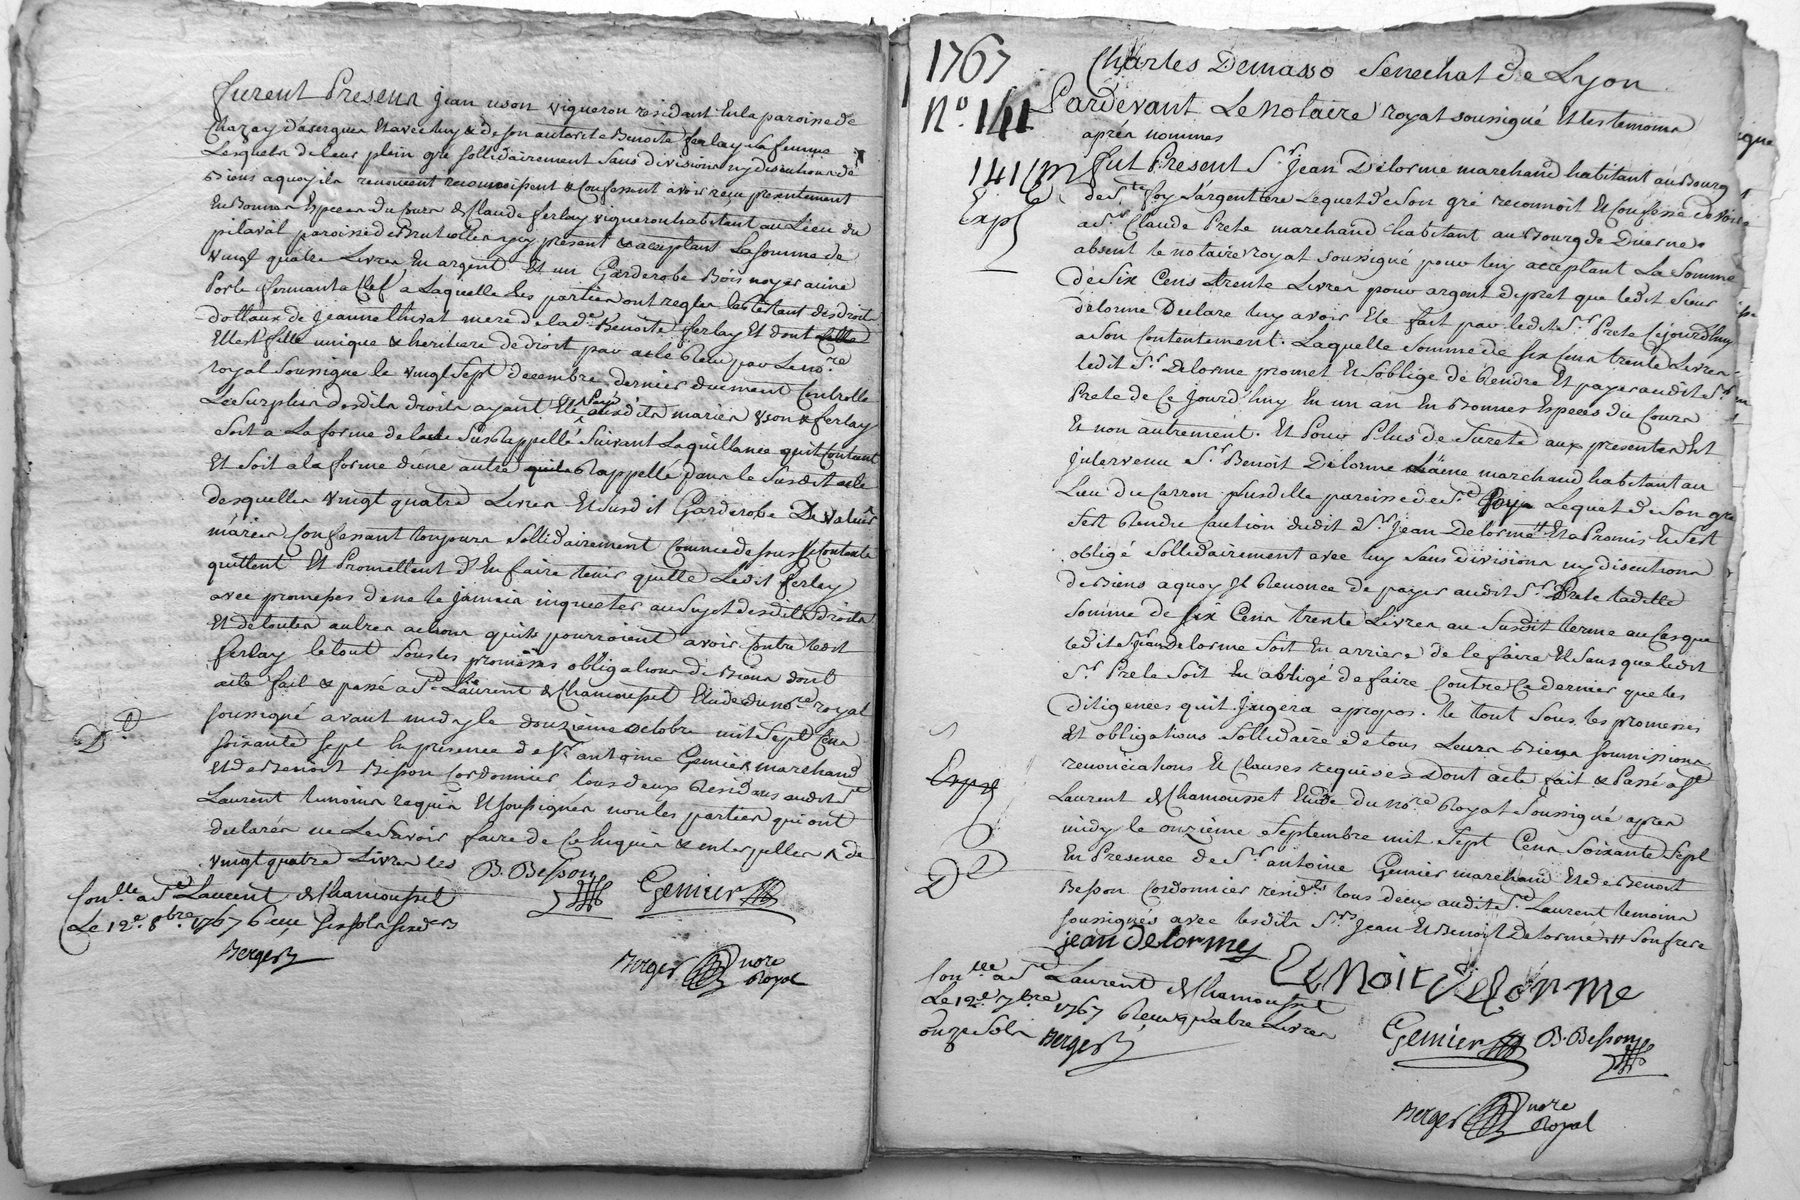 furent Presens jean uson vigneron residant en la paroisse de
Chazay d'asergues Et avec luy & de son autorité Benoîte ferlay sa femme
Lesquels de leur plein gré sollidairement sans divisions ny discutions de
Biens a quoy ils renoncent reconnoissent & confessent avoir reçu presentement
En Bonnes Especes du Cours de Claude ferlay vigneron habitant au Lieu du
pilaval paroisse de Brutollières icy présent & acceptant La somme de
vingt quatre Livres En argent Et un Garderobe Bois noyer a une
Porte fermant a Clef a Laquelle les parties ont regler le restant des droits
dottaux de jeanne thivat mere de lade Benoîte ferlay Et dont Elle
Elle est fille unique & heritiere de droit par acte Reçu par Le nore
royal soussigné le vingt Sept decembre dernier duement Controllé
Le surplus desdits droits ayant Eté payé ausdits mariés uson & ferlay
Soit a La forme de lacte Susrappellé Suivant La quittance quil Contient
Et Soit a la forme d'une autre Rappellé dans le Susdit acte
desquelles vingt quatre Livres Et susdit Garderobe De valeur
mariés Confessant toujours Sollidairement Comme dessus se Contente
quittent Et Promettent d'En faire tenir quitte Ledit ferlay
avec promesses de ne le jamais inquieter au Sujet desdits droits
Et de toutes autres actions quils pourroient avoir Contre ledit
ferlay le tout Sous les promesses obligations de Biens dont
acte fait & passé a St Laurent de Chamousset Etude du nore royal
soussigné avant midy le douzième octobre mil Sept Cens
soixante Sept En presence de Sr antoine Gemier marchand
Et de Benoit Besson Cordonnier tous deux Residans audit St
Laurent temoins requis Et soussignés non les parties qui ont
declarés ne Le Savoir faire de Ce Enquis & interpellés /. de
vingt quatre Livres les B. Besson
Gemier
Conlle a St Laurent de Chamousset
Le 12e 8bre 1767 Reçu
Berger
Berger nore
Royal
Dd
1767
No. 141
141
Exp
Charles Demasso Senechal de Lyon
Pardevant Le Notaire royal soussigné Et les temoins
après nommés
Fut Present Sr Jean Delorme marchand habitant au Bourg
de Ste foy L'argentiere Lequel de Son gré reconnoit Et Confesse devoir
a Sr Claude Prete marchand habitant au Bourg de Duerne
absent le notaire royal soussigné pour luy acceptant La Somme
de Six Cens trente Livres pour argent de pret que ledit Sieur
delorme Declare luy avoir Eté fait par ledit Sr Prete Cejourd'huy
a Son Contentement. Laquelle Somme de six Cens trente Livres
ledit Sr Delorme promet Et s'oblige de Rendre Et payer audit Sr
Prete de Ce Jourd'huy En un an En Bonnes Especes du Cours
Et non autrement. Et Pour Plus de Sureté aux presentes Est
Intervenu Sr Benoit Delorme L'ainé marchand habitant au
Lieu du Carron susditte paroisse de Ste foy Lequel de Son gré
s'est Rendu Caution dudit Sr Jean Delorme Et a Promis Et s'est
obligé Sollidairement avec luy Sans divisions ny discutions
de Biens a quoy Il Renonce de payer audit Sr Prete laditte
Somme de six Cens trente Livres au Susdit terme au Cas que
ledit Sr Jean delorme Soit En arriere de le faire Et Sans que ledit
Sr Prete Soit En obligé de faire Contre Ce dernier que les
diligences quil Jugera apropos. le tout Sous les promesses
Et obligations Sollidaire de tous Leurs Biens soumissions
renonciations Et Clauses requises Dont acte fait & Passé a St
Laurent de Chamousset Etude du Nore Royal Soussigné apres
midy le onzième Septembre mil Sept Cens Soixante Sept
En Presence de Sr antoine Gemier marchand Et de Benoit
Besson Cordonnier residts tous deux audit St Laurent temoins
soussignés avec lesdits Srs Jean Et Benoit Delorme son frere
jean delorme
Benoit Delorme
Conlle a St Laurent de Chamousset
Le 12e 7bre 1767 Reçu quatre Livres
onze Sols Berger
Gemier B. Besson
Berger nore
Royal
Expe
Dd